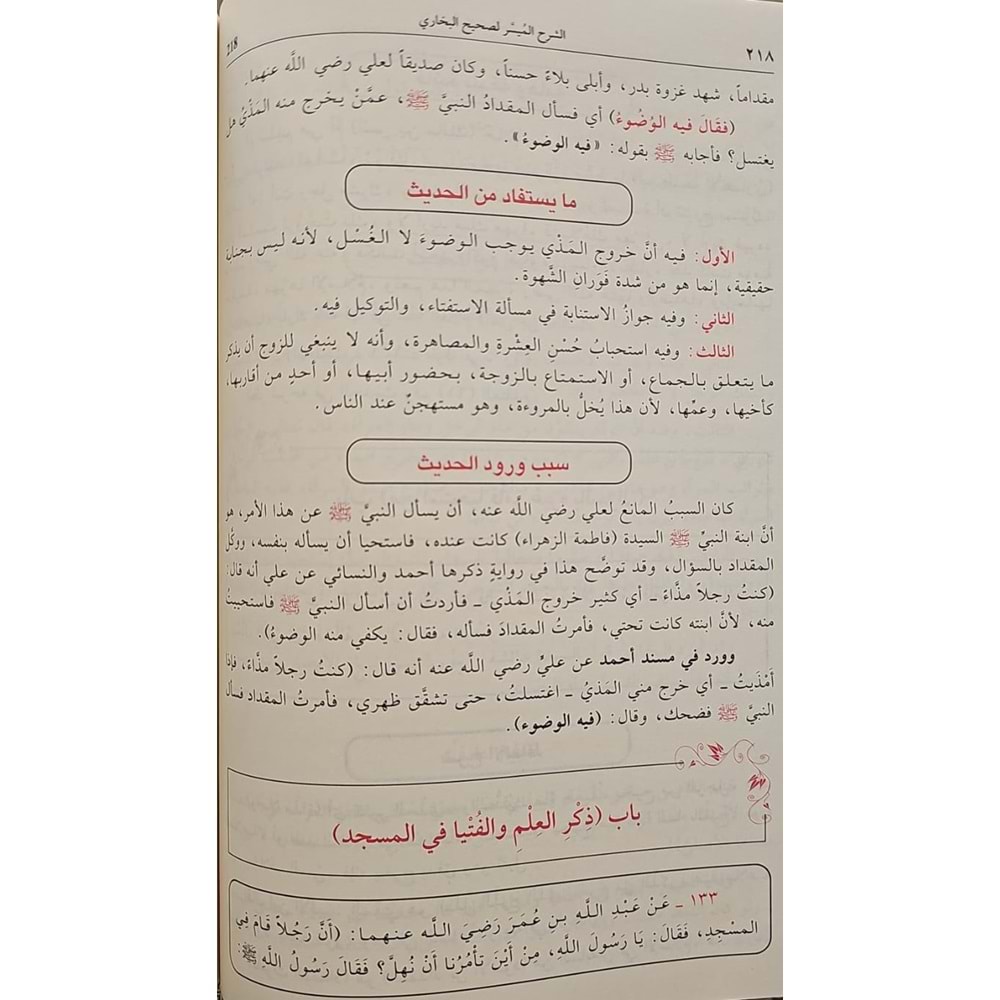 الشرح المُيسَّر لصحيح البخاري
٢١٨
218
مقداماً، شهد غزوة بدر، وأبلى بلاءً حسناً، وكان صديقاً لعلي رضي اللَّه عنهما.
(فقَالَ فيه الوُضُوءُ) أي فسأل المقدادُ النبيَّ ﷺ، عمَّنْ يخرج منه المَذْيُ هل
يغتسل؟ فأجابه ﷺ بقوله: «فيه الوضوءُ».
ما يستفاد من الحديث
الأول: فيه أنَّ خروج المَذْي يوجب الوضوءَ لا الغُسْل، لأنه ليس بجنابة
حقيقية، إنما هو من شدة فَوَرانِ الشَّهوة.
الثاني: وفيه جوازُ الاستنابة في مسألة الاستفتاء، والتوكيل فيه.
الثالث: وفيه استحبابُ حُسْنِ العِشْرةِ والمصاهرة، وأنه لا ينبغي للزوج أن يذكر
ما يتعلق بالجماع، أو الاستمتاع بالزوجة، بحضور أبيها، أو أحدٍ من أقاربها،
كأخيها، وعمِّها، لأن هذا يُخلُّ بالمروءة، وهو مستهجنٌ عند الناس.
سبب ورود الحديث
كان السببُ المانعُ لعلي رضي اللَّه عنه، أن يسأل النبيَّ ﷺ عن هذا الأمر، هو
أنَّ ابنة النبيِّ ﷺ السيدة (فاطمة الزهراء) كانت عنده، فاستحيا أن يسأله بنفسه، ووكَّل
المقداد بالسؤال، وقد توضَّح هذا في روايةٍ ذكرها أحمد والنسائي عن علي أنه قال:
(كنتُ رجلاً مذَّاءً ـ أي كثير خروج المَذْي ـ فأردتُ أن أسأل النبيَّ ﷺ فاستحييتُ
منه، لأنَّ ابنته كانت تحتي، فأمرتُ المقدادَ فسأله، فقال: يكفي منه الوضوءُ).
وورد في مسند أحمد عن عليٍّ رضي اللَّه عنه أنه قال: (كنتُ رجلاً مذَّاءً، فإذا
أَمْذَيتُ ـ أي خرج مني المَذيُ ـ اغتسلتُ، حتى تشقَّق ظهري، فأمرتُ المقداد فسأل
النبيَّ ﷺ فضحك، وقال: (فيه الوضوء).
باب (ذِكْرِ العِلْمِ والفُتْيا في المسجد)
١٣٣ ـ عَنْ عَبْدِ اللَّهِ بنِ عُمَرَ رَضِيَ اللَّه عنهما: (أنَّ رَجُلاً قَامَ فِي
المسْجِدِ، فَقَالَ: يَا رَسُولَ اللَّهِ، مِنْ أَيْنَ تأمُرُنا أنْ نُهِلَّ؟ فَقَالَ رَسُولُ اللَّهِ ﷺ: